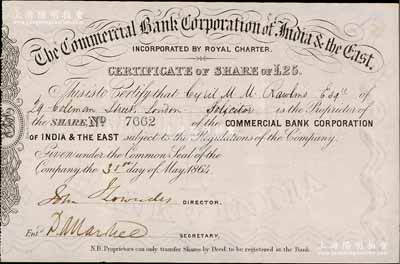 The Commercial Bank Corporation of India & the East.
INCORPORATED BY ROYAL CHARTER.
CERTIFICATE OF SHARE OF £25.
This is to Certify that Cyril M. M. Rawlins Esqre. of
29 Coleman Street London Solicitor is the Proprietor of
the SHARE No 7662 of the COMMERCIAL BANK CORPORATION
OF INDIA & THE EAST subject to the Regulations of the Company.
Given under the Common Seal of the
Company, the 31st day of May 1864
John
DIRECTOR.
Entd.
SECRETARY.
N.B. Proprietors can only transfer Shares by Deed to be registered in the Bank.